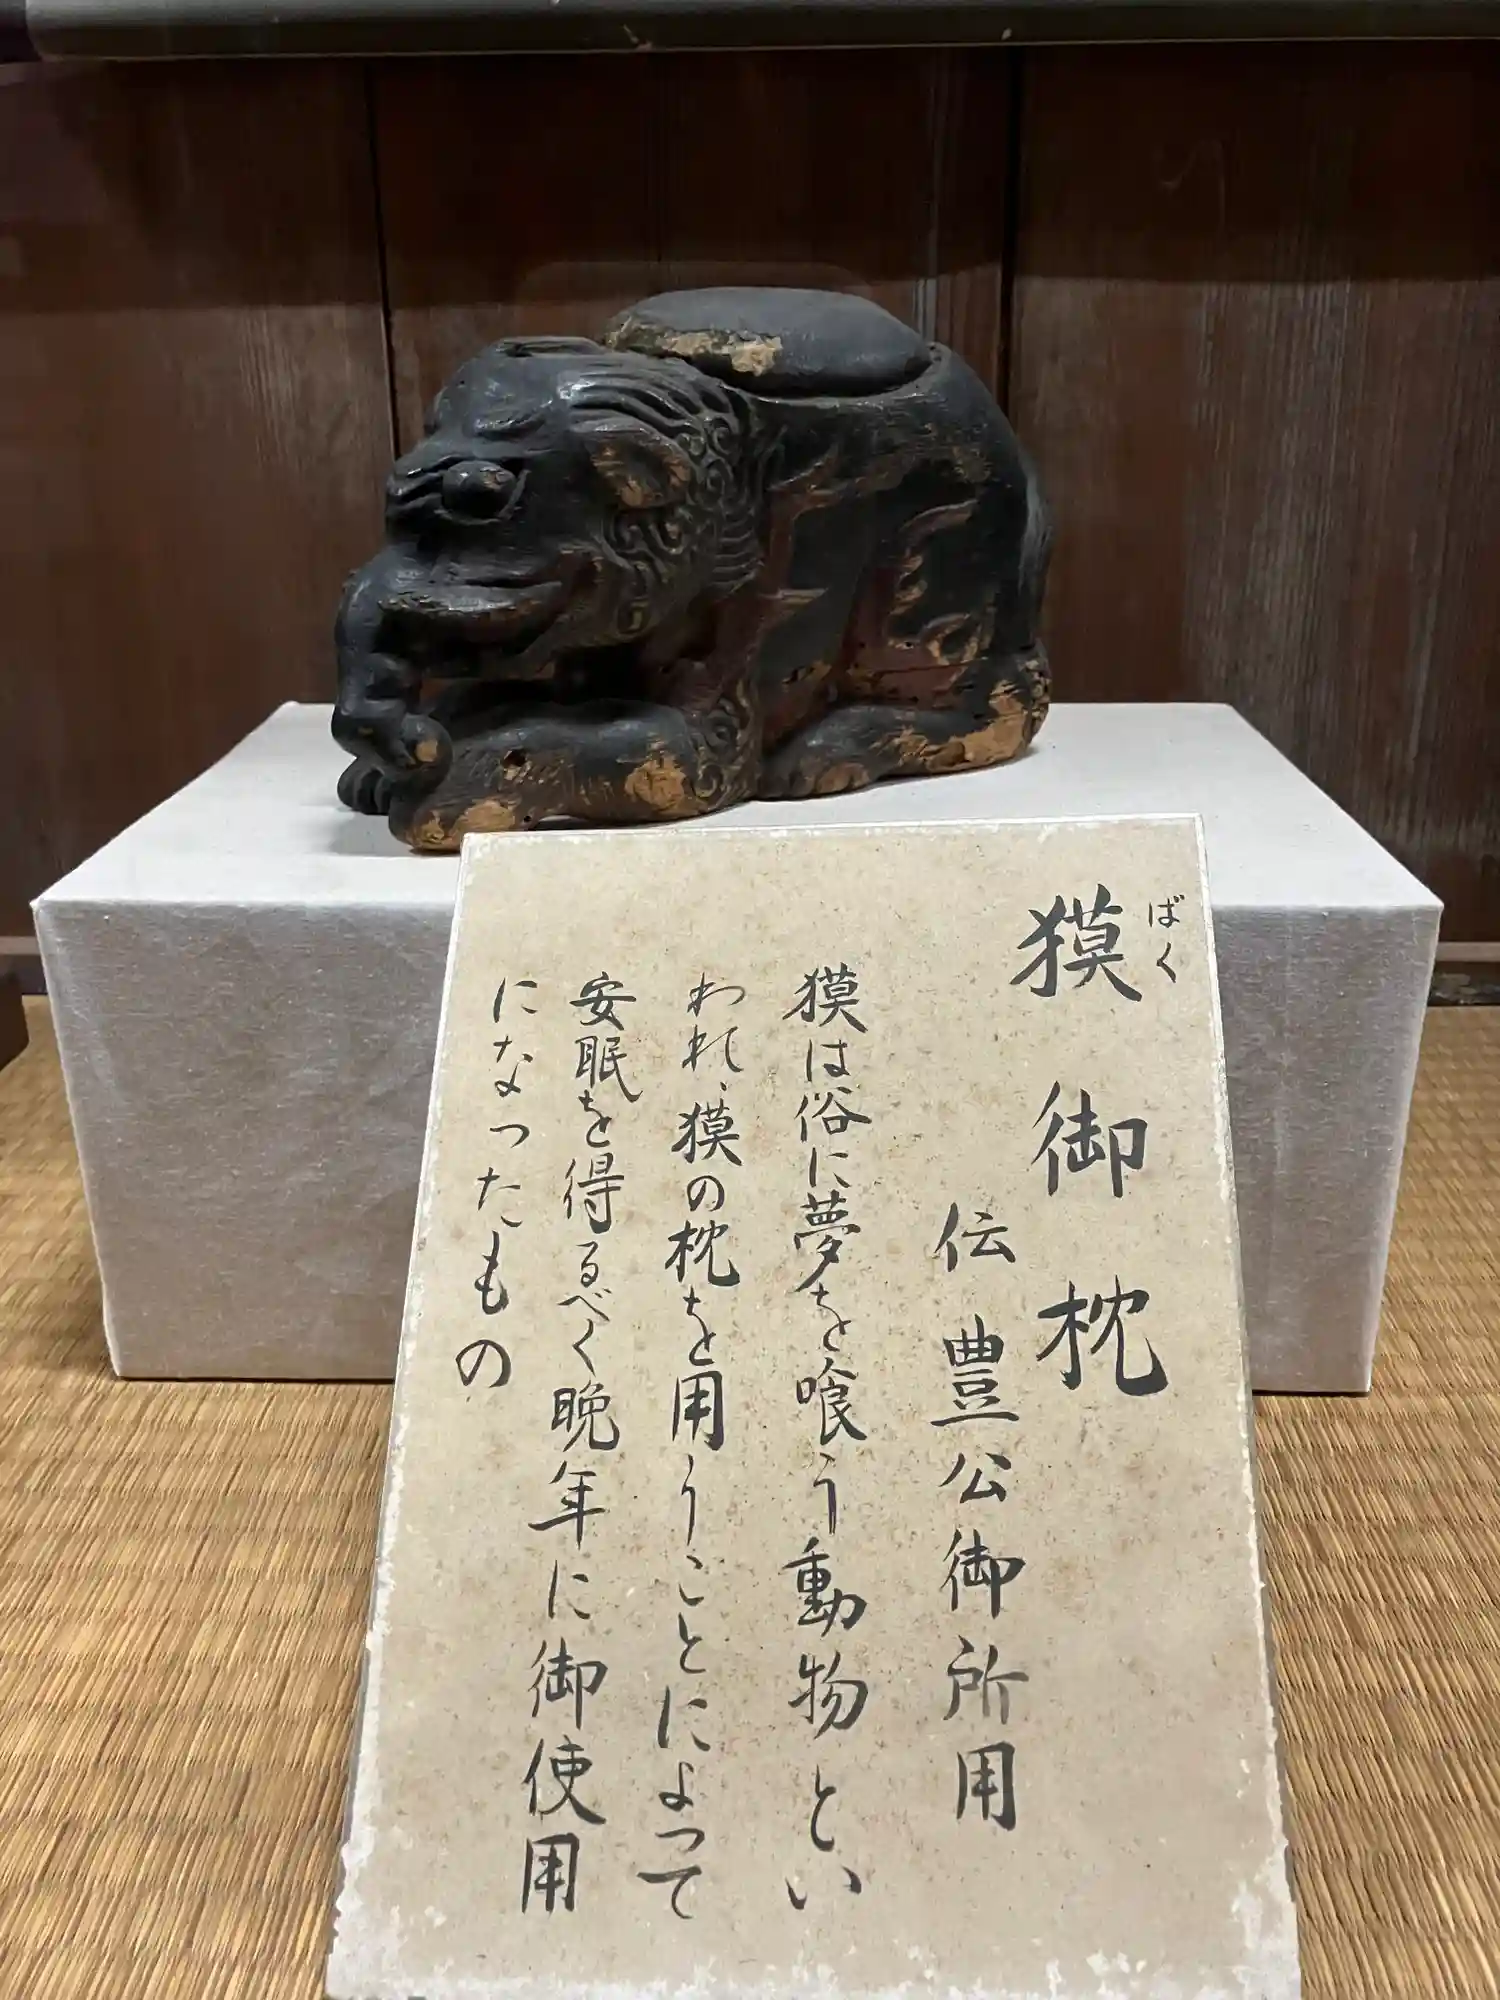 ばく
獏御枕
伝 豊公御所用
獏は俗に夢を喰う動物とい
われ、獏の枕を用うことによって
安眠を得るべく晩年に御使用
になったもの